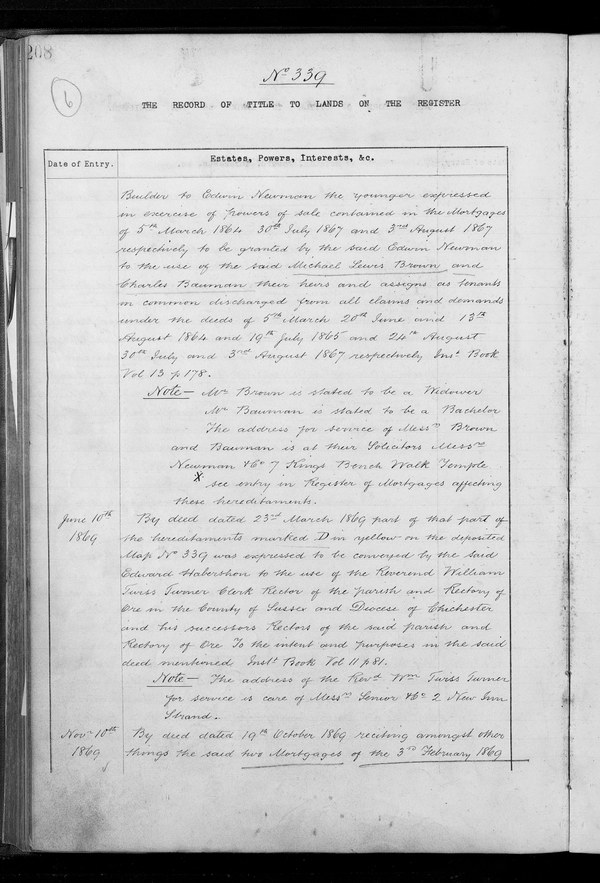 208
6
No 339
THE RECORD OF TITLE TO LANDS ON THE REGISTER
Date of Entry.
Estates, Powers, Interests, &c.
Builder to Edwin Newman the younger expressed
in exercise of powers of sale contained in the Mortgages
of 5th March 1864 30th July 1867 and 3rd August 1867
respectively to be granted by the said Edwin Newman
to the use of the said Michael Lewis Brown and
Charles Bauman their heirs and assigns as tenants
in common discharged from all claims and demands
under the deeds of 5th March 20th June and 13th
August 1864 and 19th July 1865 and 24th August
30th July and 3rd August 1867 respectively Inst Book
Vol 13 p 178.
Note - Mr Brown is stated to be a Widower
Mr Bauman is stated to be a Bachelor
The address for service of Messrs Brown
and Bauman is at their Solicitors Messrs
Newman &Co 7 Kings Bench Walk Temple
X see entry in Register of Mortgages affecting
these hereditaments.
June 10th
1869
By deed dated 23rd March 1869 part of that part of
the hereditaments marked D in yellow on the deposited
Map No 339 was expressed to be conveyed by the said
Edward Habershon to the use of the Reverend William
Twiss Turner Clerk Rector of the parish and Rectory of
Ore in the County of Sussex and Diocese of Chichester
and his successors Rectors of the said parish and
Rectory of Ore To the intent and purposes in the said
deed mentioned Inst Book Vol 11 p 81.
Note - The address of the Revd Wm Twiss Turner
for service is care of Messrs Senior &Co 2 New Inn
Strand.
Novr 10th
1869
By deed dated 19th October 1869 reciting amongst other
things the said two Mortgages of the 3rd February 1869